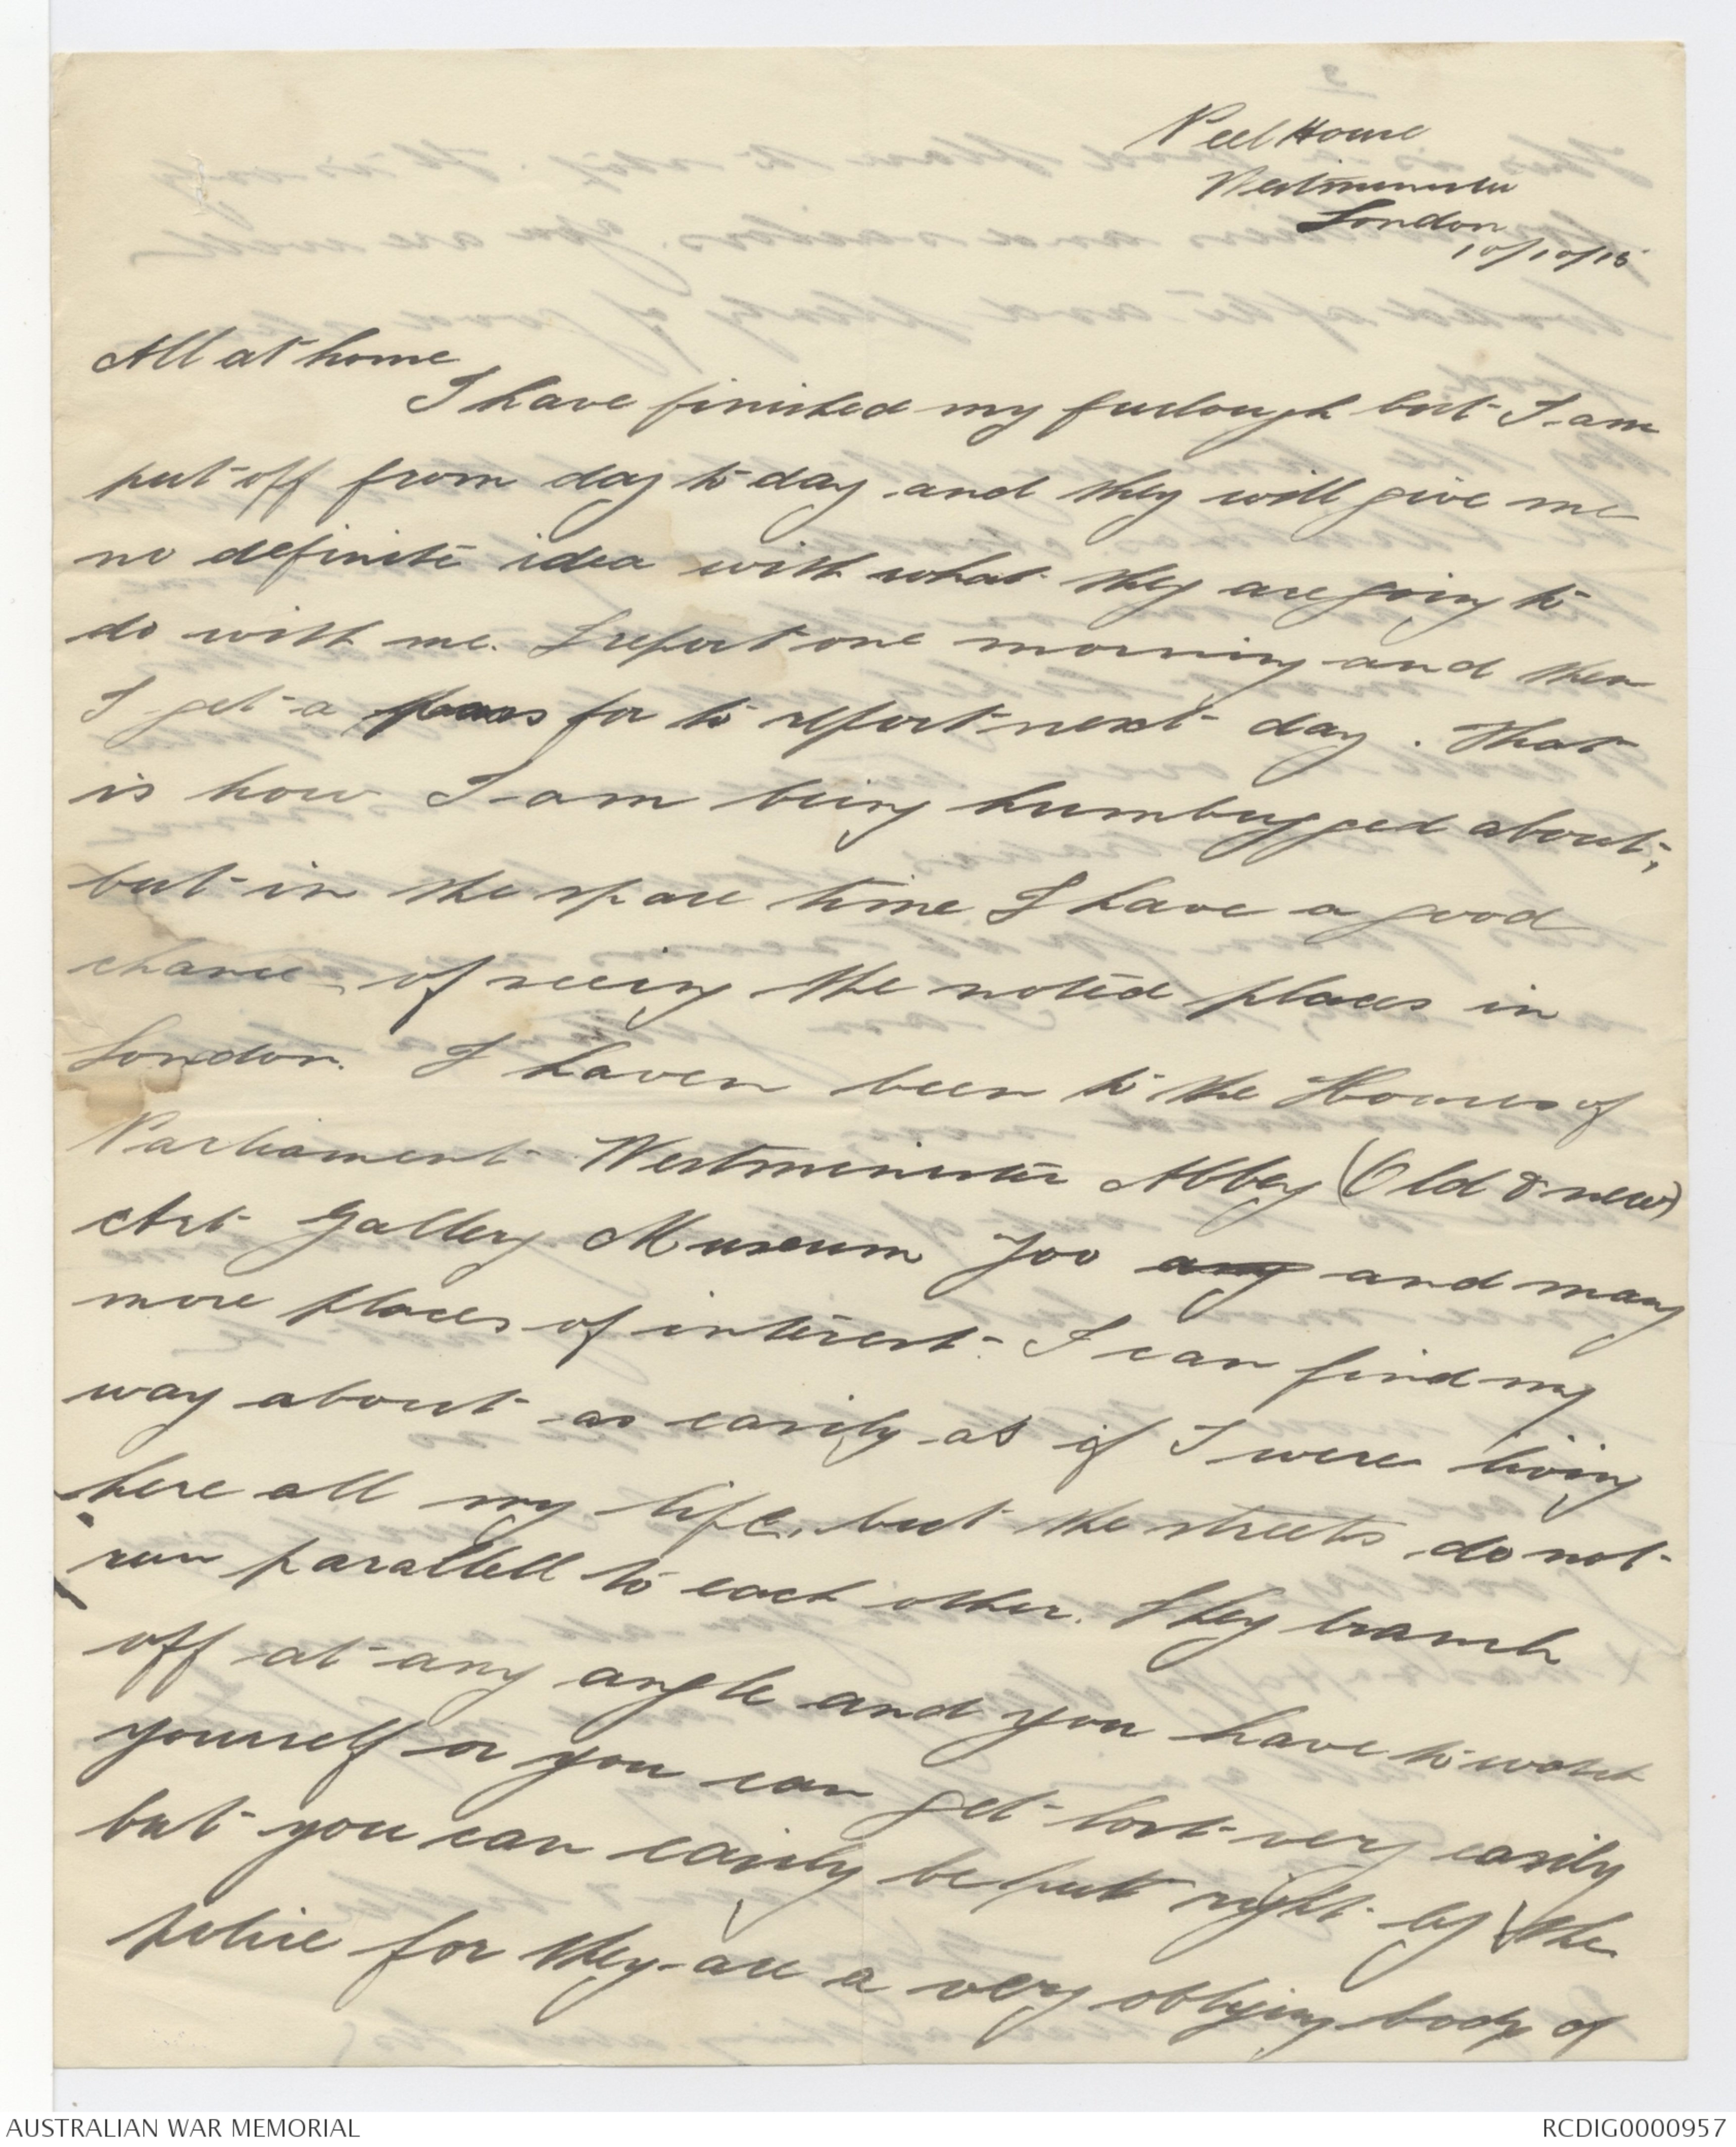 Peel House
Westminster
London
10/10/15
All at home
I have finished my furlough but I am
put off from day to day and they will give me
no definite idea with what they are going to
do with me. I report one morning and then
I get a pass for to report next day. That
is how I am being humbugged about;
but in the spare time I have a good
chance of seeing the noted places in
London. I haven been to the Houses of
Parliament Westminster Abbey (Old & new)
Art Gallery Museum Zoo any and many
more places of interest. I can find my
way about as easily as if I were living
here all my life, but the streets do not
run parallell to each other. They branch
off at any angle and you have to watch
yourself or you can get lost very easily
but you can easily be put right by the
police for they are a very obliging body of
AUSTRALIAN WAR MEMORIAL
RCDIG0000957